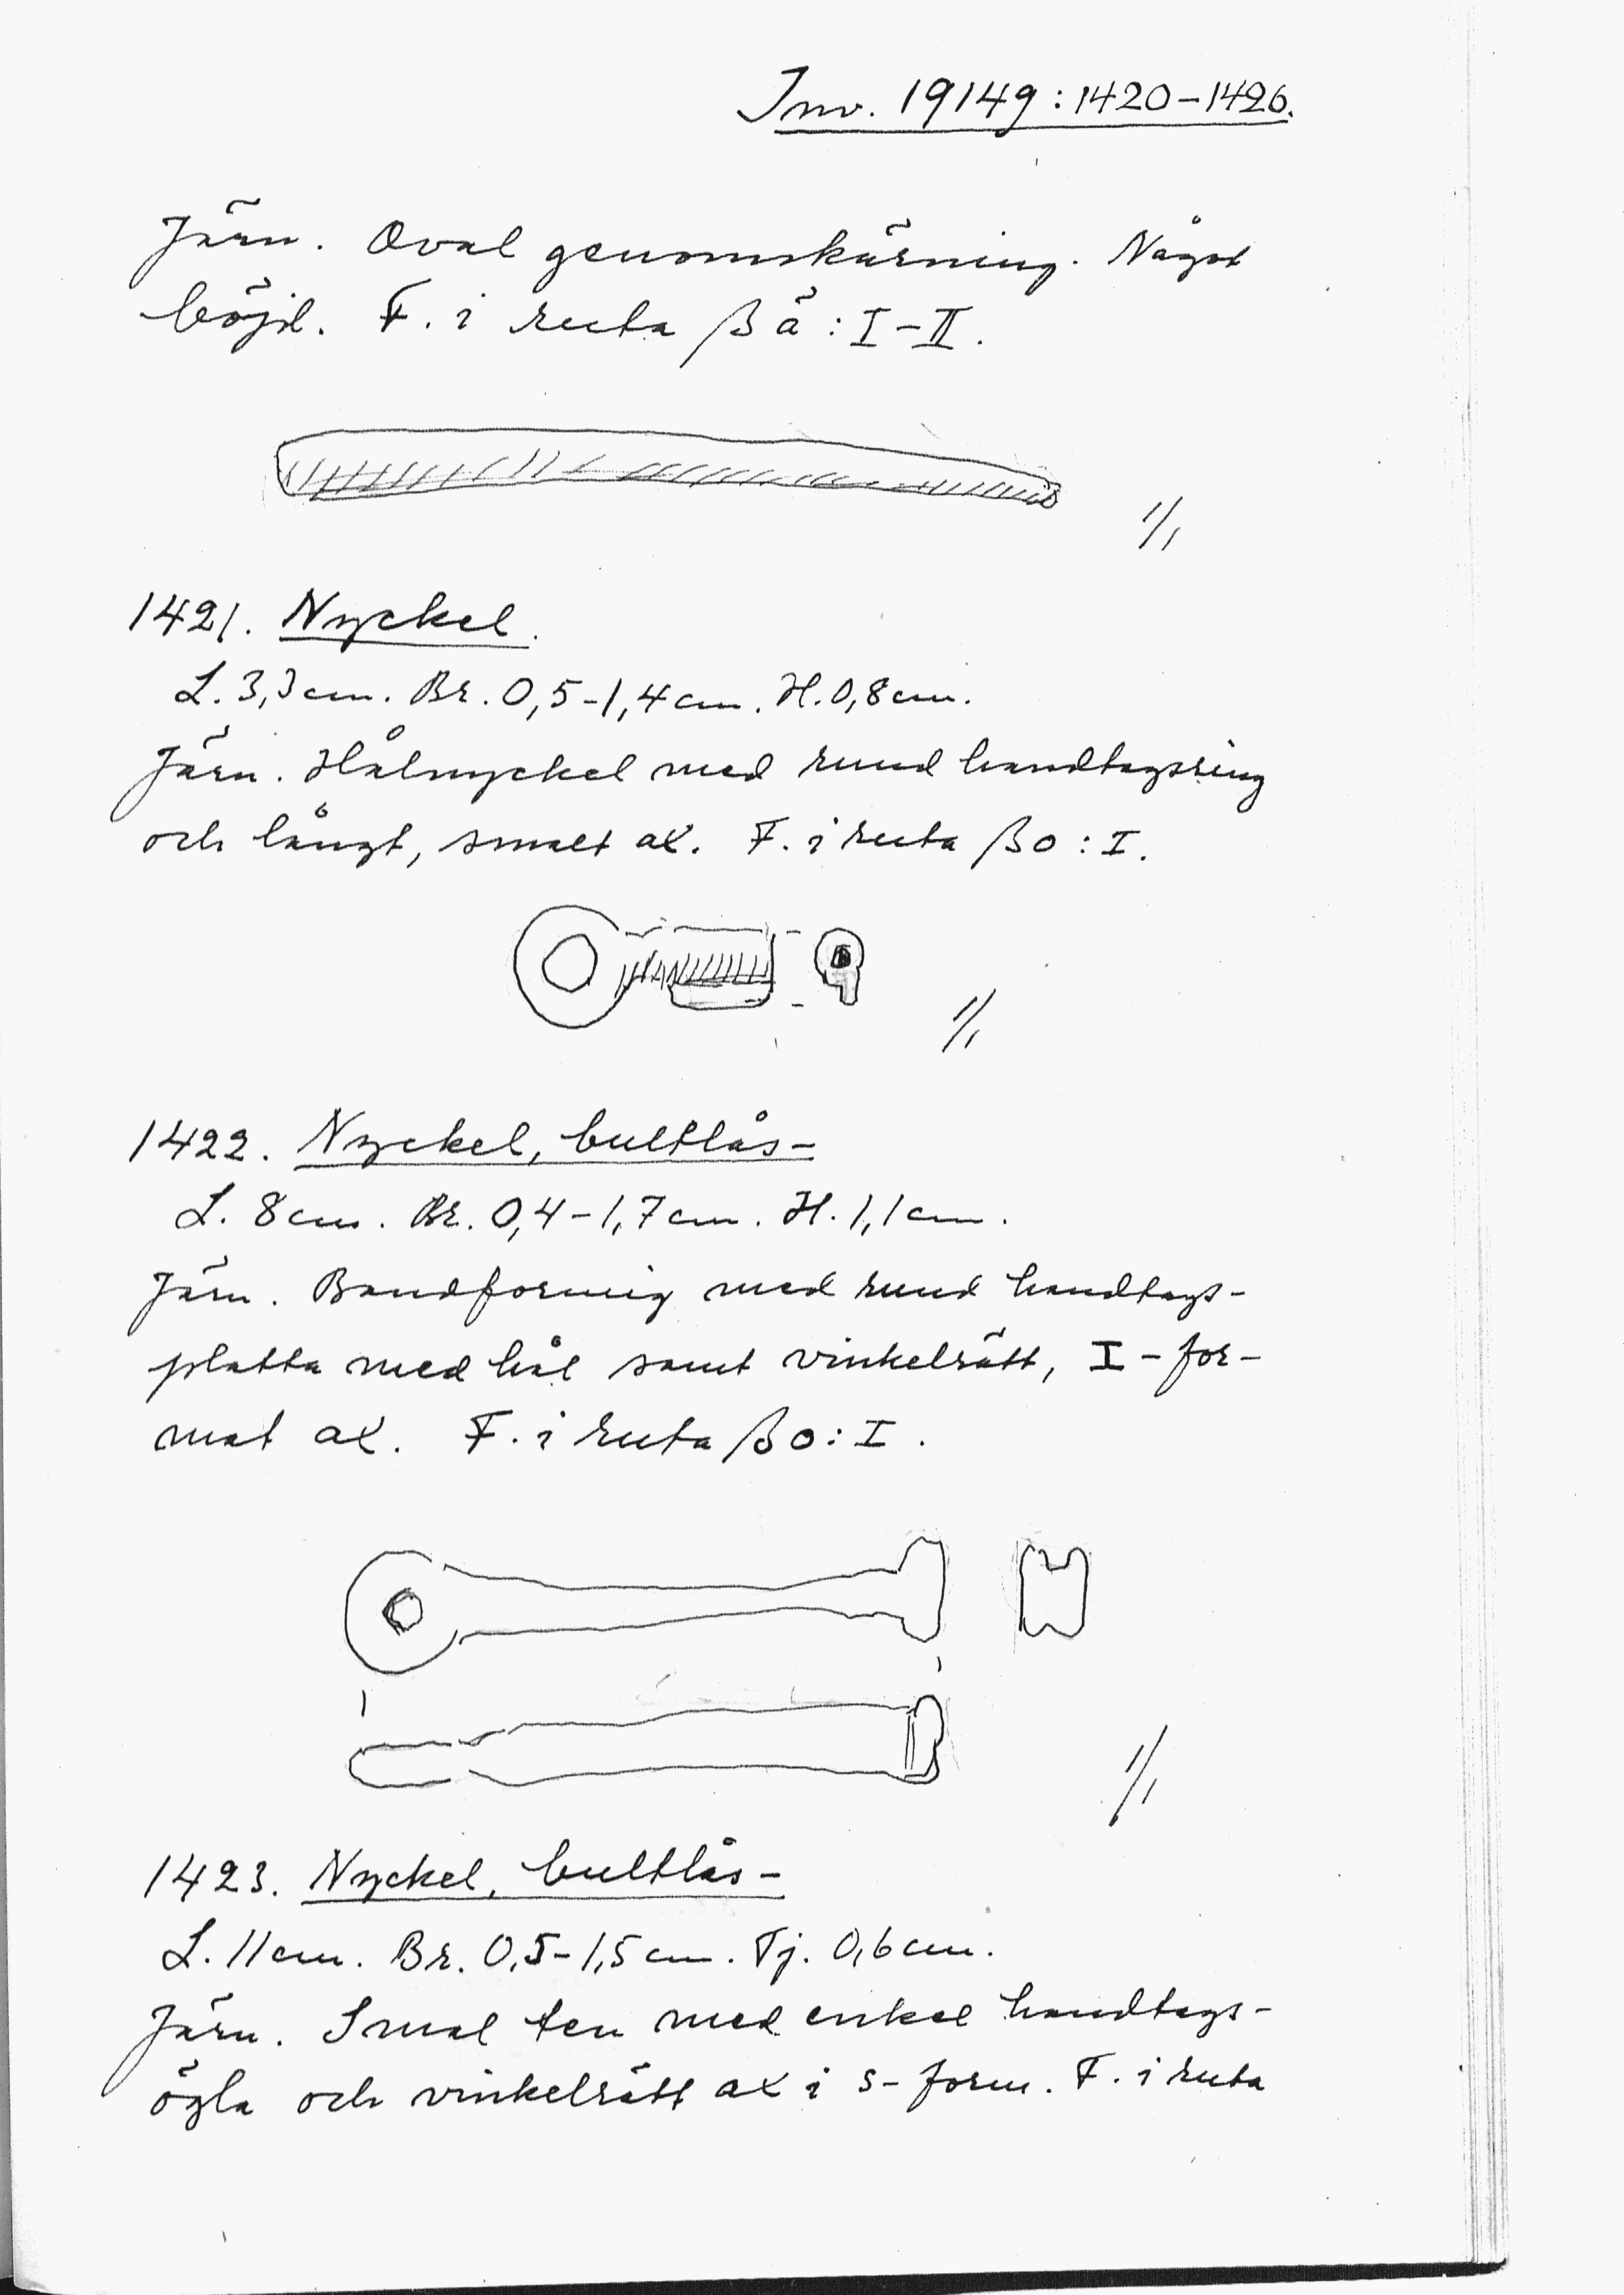 Inv. 19149:1420–1426.
Järn. Oval genomskärning. Något
böjd. F. i ruta βä: I–II.
1/1
1421. Nyckel.
L. 3,3 cm. Br. 0,5–1,4 cm. H. 0,8 cm.
Järn. Hålnyckel med rund handtagsring
och långt, smalt ax. F. i ruta βo: I.
1/1
1422. Nyckel, bultlås-
L. 8 cm. Br. 0,4–1,7 cm. H. 1,1 cm.
Järn. Bandformig med rund handtags-
platta med hål samt vinkelrätt, I-for-
mat ax. F. i ruta βo: I.
1/1
1423. Nyckel, bultlås-
L. 11 cm. Br. 0,5–1,5 cm. Tj. 0,6 cm.
Järn. Smal ten med enkel handtags-
ögla och vinkelrätt ax i s-form. F. i ruta